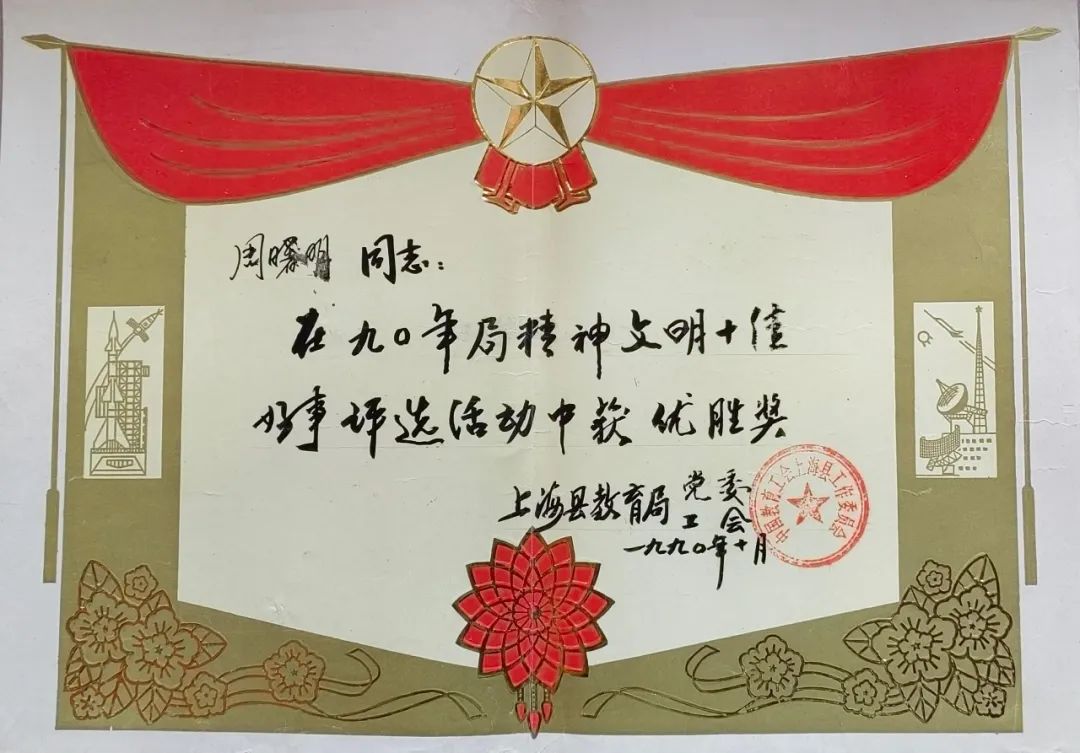 周曙明 同志：
在九〇年局精神文明十佳
好事评选活动中获优胜奖
上海县教育局 党委
工会
一九九〇年十月
中国教育工会上海县工作委员会